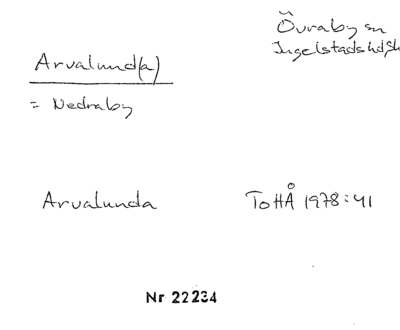 Övraby sn
Ingelstads hd, Sk
Arvalund(a)
= Nedraby
Arvalunda ToHÅ 1978:41
Nr 22234